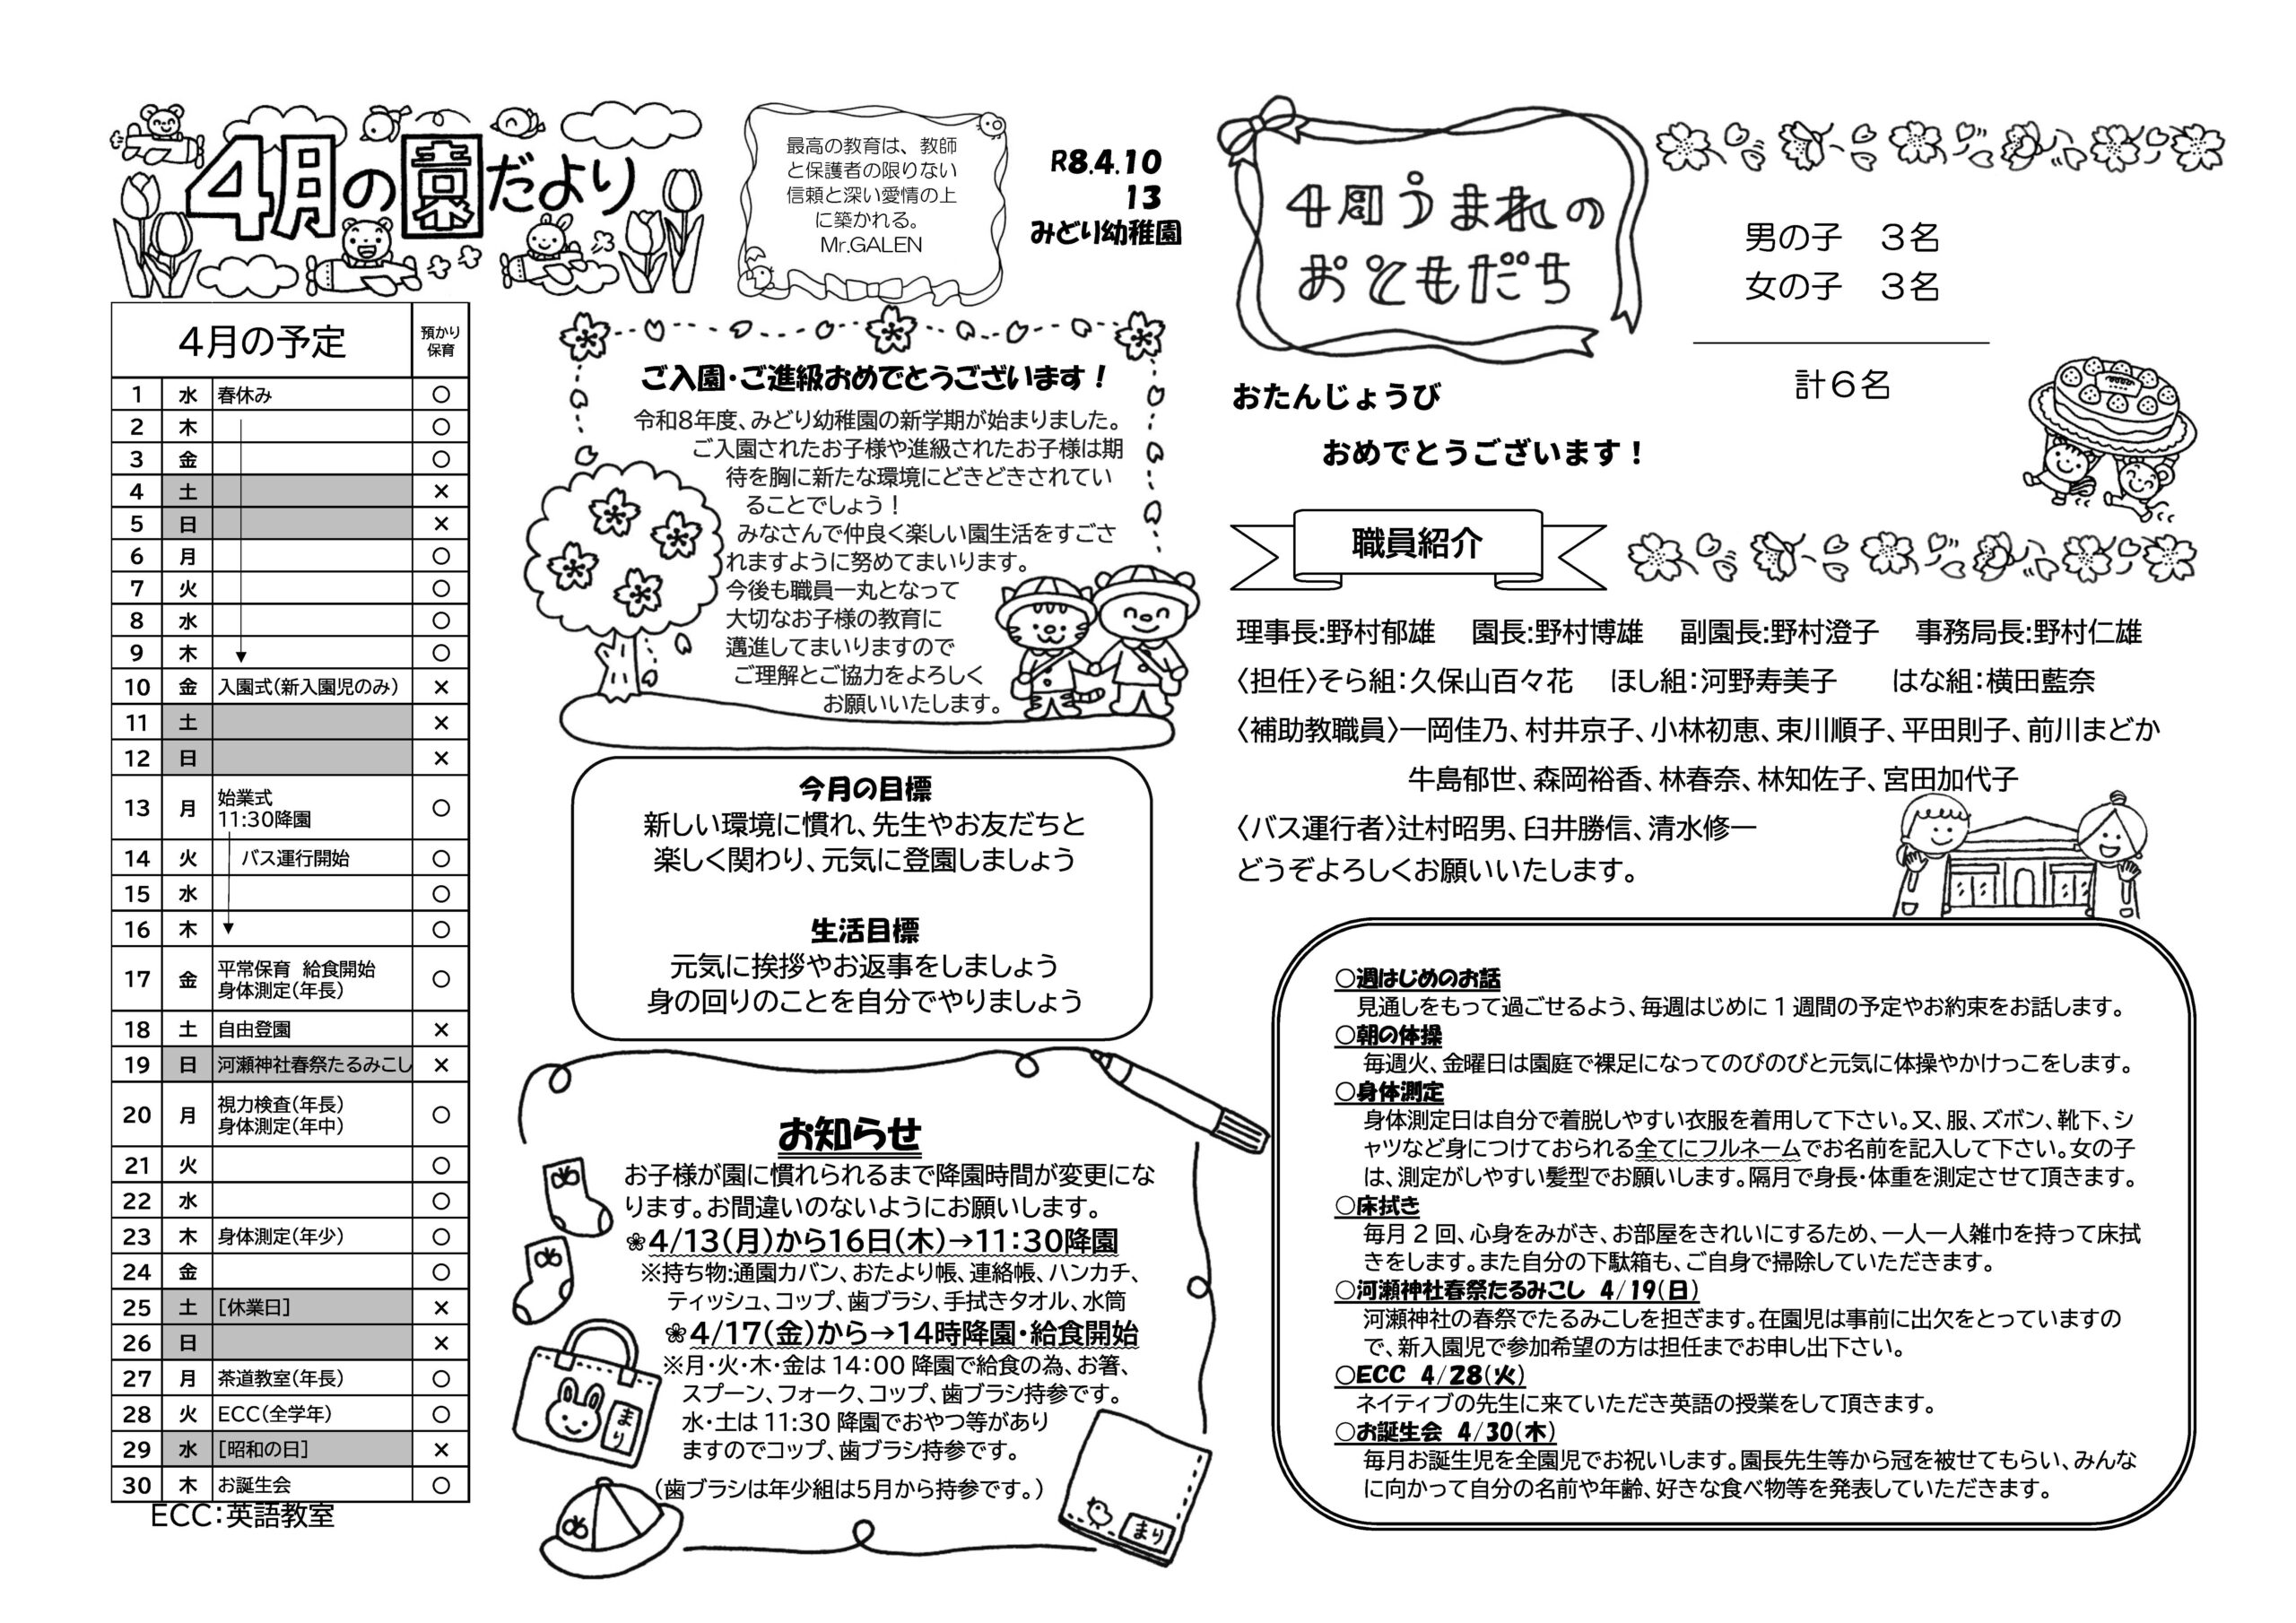 4月の園だより
最高の教育は、教師
と保護者の限りない
信頼と深い愛情の上
に築かれる。
Mr.GALEN
R8.4.10
13
みどり幼稚園
4月の予定 預かり保育
1 水 春休み ○
2 木 ○
3 金 ○
4 土 ×
5 日 ×
6 月 ○
7 火 ○
8 水 ○
9 木 ○
10 金 入園式(新入園児のみ) ×
11 土 ×
12 日 ×
13 月 始業式 11:30降園 ○
14 火 バス運行開始 ○
15 水 ○
16 木 ○
17 金 平常保育 給食開始 身体測定(年長) ○
18 土 自由登園 ×
19 日 河瀬神社春祭たるみこし ×
20 月 視力検査(年長) 身体測定(年中) ○
21 火 ○
22 水 ○
23 木 身体測定(年少) ○
24 金 ○
25 土 [休業日] ×
26 日 ×
27 月 茶道教室(年長) ○
28 火 ECC(全学年) ○
29 水 [昭和の日] ×
30 木 お誕生会 ○
ECC:英語教室
ご入園・ご進級おめでとうございます!
令和8年度、みどり幼稚園の新学期が始まりました。
ご入園されたお子様や進級されたお子様は期
待を胸に新たな環境にどきどきされてい
ることでしょう!
みなさんで仲良く楽しい園生活をすごさ
れますように努めてまいります。
今後も職員一丸となって
大切なお子様の教育に
邁進してまいりますので
ご理解とご協力をよろしく
お願いいたします。
今月の目標
新しい環境に慣れ、先生やお友だちと
楽しく関わり、元気に登園しましょう
生活目標
元気に挨拶やお返事をしましょう
身の回りのことを自分でやりましょう
お知らせ
お子様が園に慣れられるまで降園時間が変更にな
ります。お間違いのないようにお願いします。
❀4/13(月)から16日(木)→11:30降園
※持ち物:通園カバン、おたより帳、連絡帳、ハンカチ、
ティッシュ、コップ、歯ブラシ、手拭きタオル、水筒
❀4/17(金)から→14時降園・給食開始
※月・火・木・金は 14:00 降園で給食の為、お箸、
スプーン、フォーク、コップ、歯ブラシ持参です。
水・土は 11:30 降園でおやつ等があり
ますのでコップ、歯ブラシ持参です。
(歯ブラシは年少組は5月から持参です。)
まり
まり
4月うまれの
おともだち
男の子 3名
女の子 3名
計6名
おたんじょうび
おめでとうございます!
職員紹介
理事長:野村郁雄 園長:野村博雄 副園長:野村澄子 事務局長:野村仁雄
〈担任〉そら組:久保山百々花 ほし組:河野寿美子 はな組:横田藍奈
〈補助教職員〉一岡佳乃、村井京子、小林初恵、東川順子、平田則子、前川まどか
牛島郁世、森岡裕香、林春奈、林知佐子、宮田加代子
〈バス運行者〉辻村昭男、臼井勝信、清水修一
どうぞよろしくお願いいたします。
○週はじめのお話
見通しをもって過ごせるよう、毎週はじめに 1 週間の予定やお約束をお話します。
○朝の体操
毎週火、金曜日は園庭で裸足になってのびのびと元気に体操やかけっこをします。
○身体測定
身体測定日は自分で着脱しやすい衣服を着用して下さい。又、服、ズボン、靴下、シ
ャツなど身につけておられる全てにフルネームでお名前を記入して下さい。女の子
は、測定がしやすい髪型でお願いします。隔月で身長・体重を測定させて頂きます。
○床拭き
毎月 2 回、心身をみがき、お部屋をきれいにするため、一人一人雑巾を持って床拭
きをします。また自分の下駄箱も、ご自身で掃除していただきます。
○河瀬神社春祭たるみこし 4/19(日)
河瀬神社の春祭でたるみこしを担ぎます。在園児は事前に出欠をとっていますの
で、新入園児で参加希望の方は担任までお申し出下さい。
○ECC 4/28(火)
ネイティブの先生に来ていただき英語の授業をして頂きます。
○お誕生会 4/30(木)
毎月お誕生児を全園児でお祝いします。園長先生等から冠を被せてもらい、みんな
に向かって自分の名前や年齢、好きな食べ物等を発表していただきます。